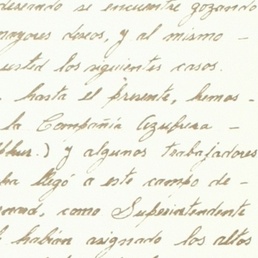 deseando se encuentre gozando
mayores deseos, y al mismo -
usted los siguientes casos.
hasta el presente, hemos -
la Compañía Azufrera -
y algunos trabajadores
llegó a este campo de -
como Superintendente
habían asignado los altos